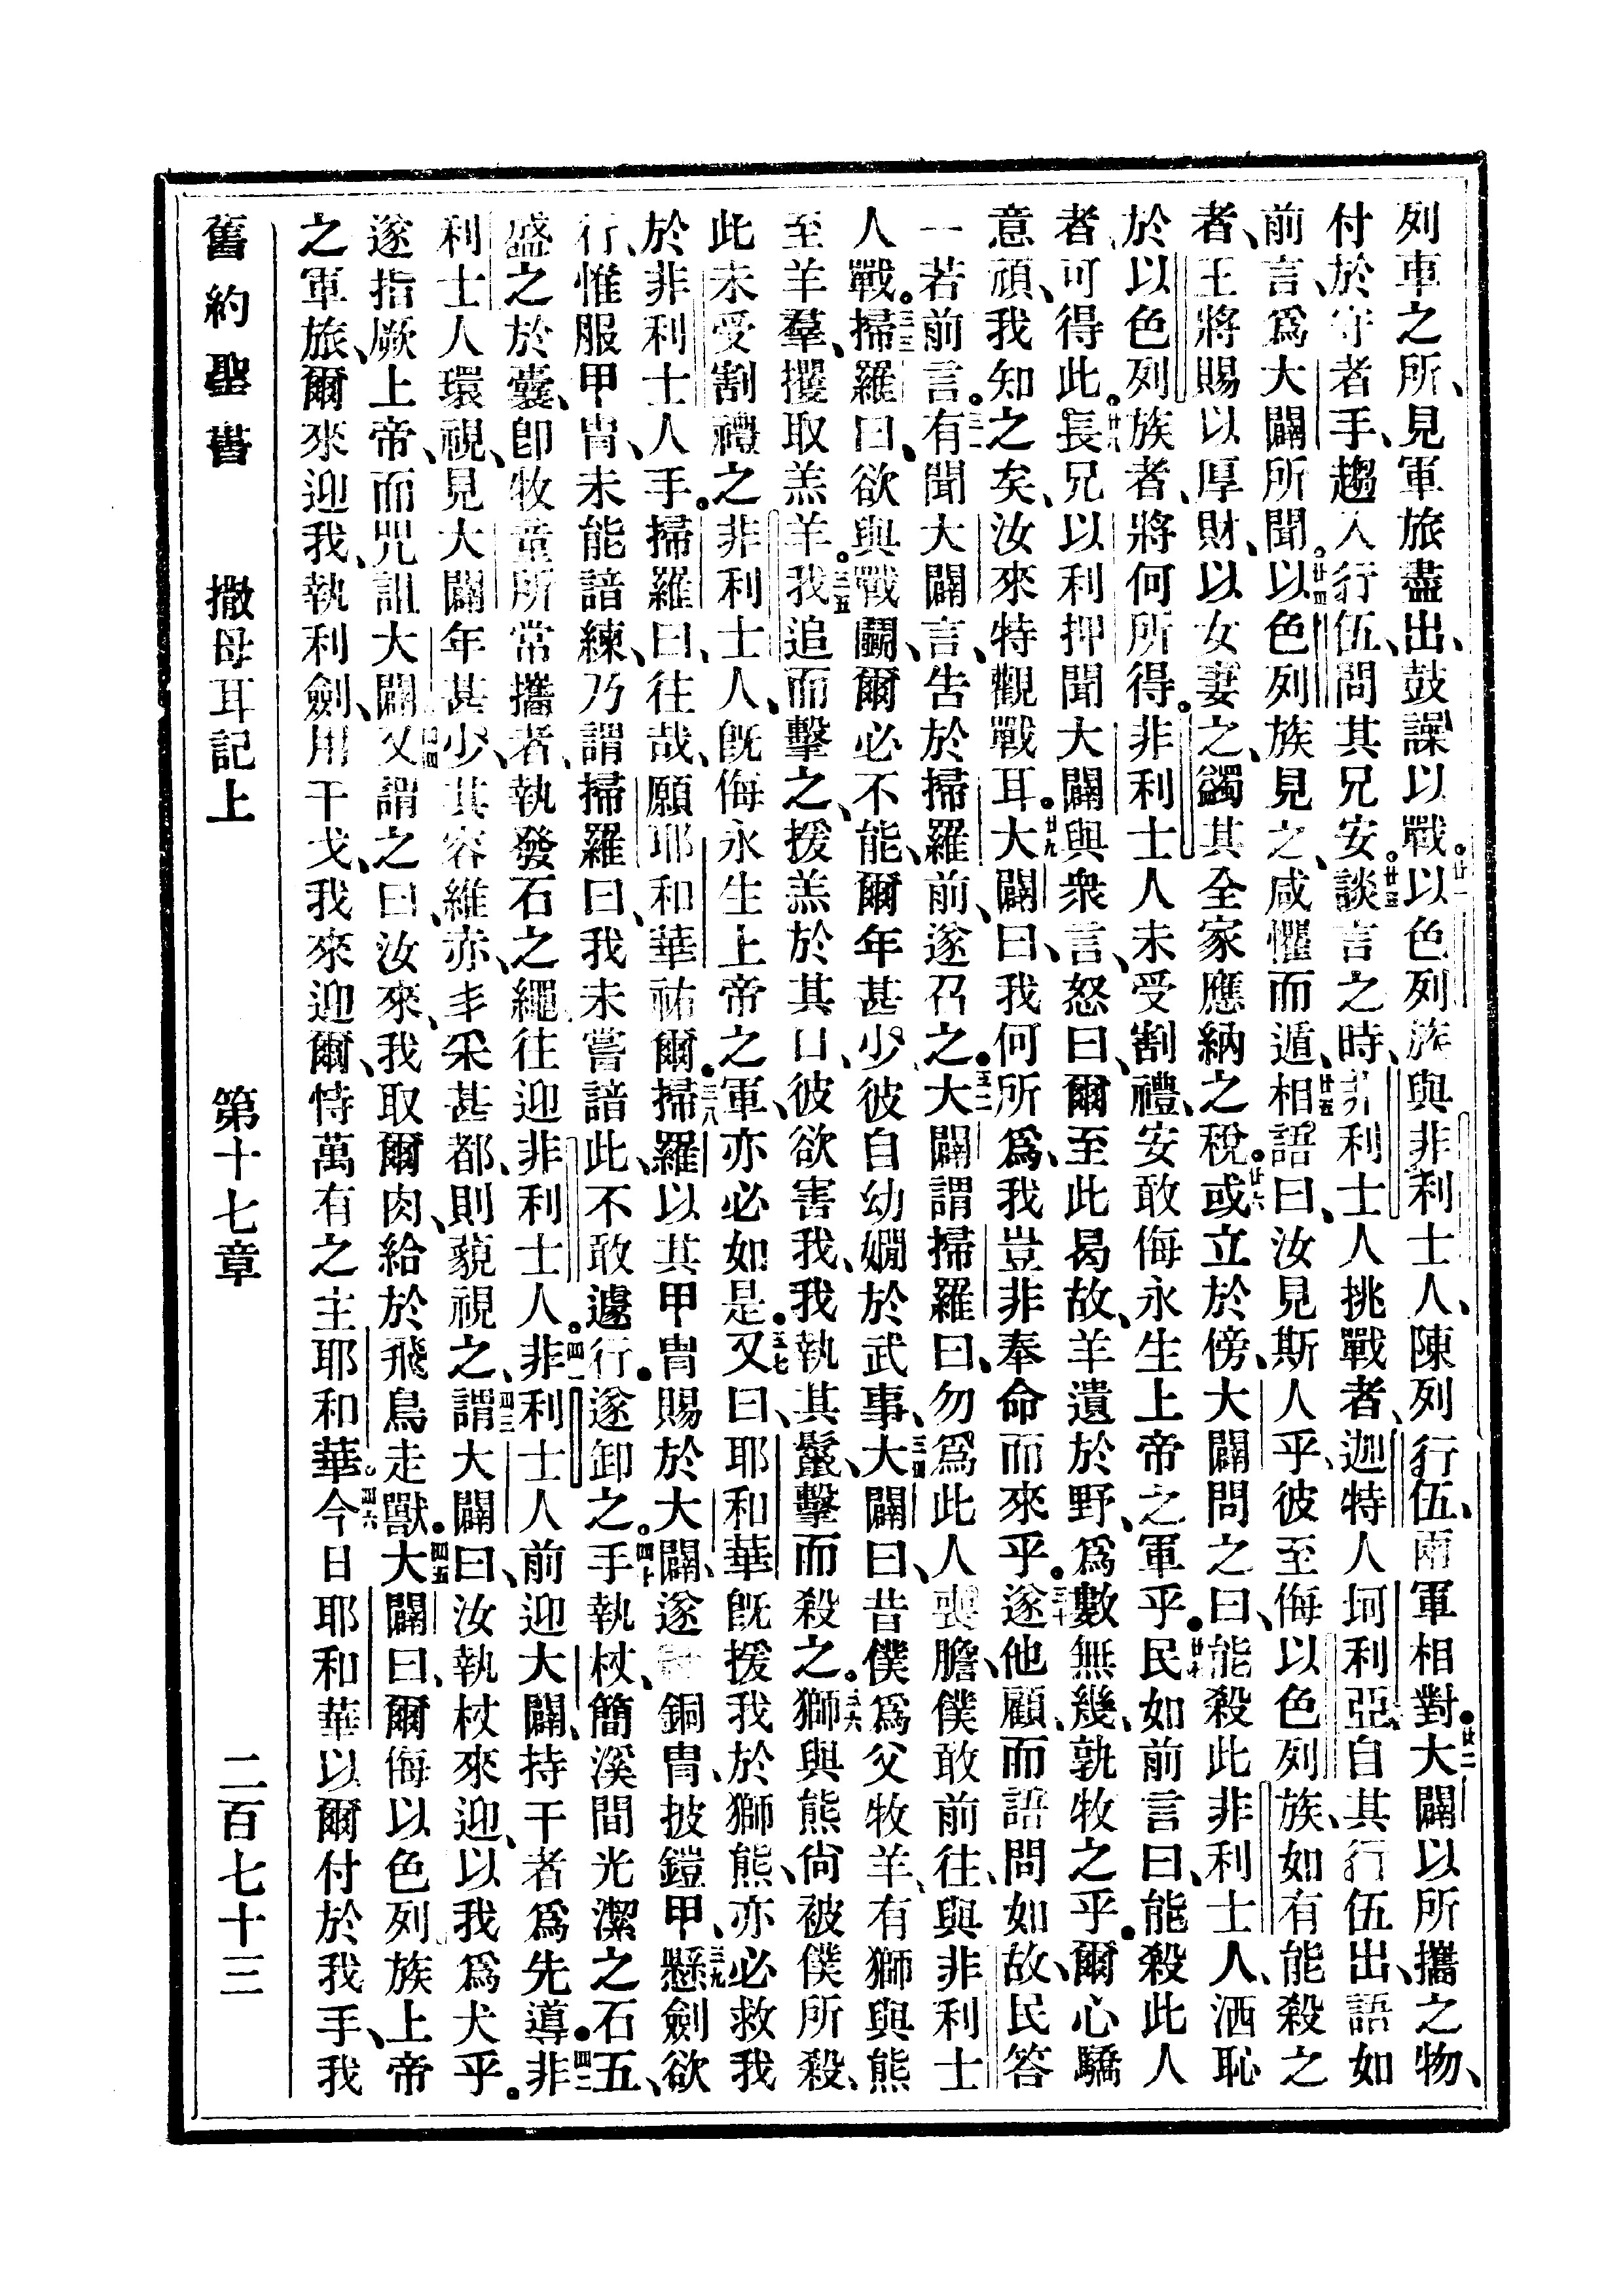 列車之所、見軍旅盡出、鼓譟以戰。廿一以色列族與非利士人、陳列行伍、兩軍相對。廿二大闢以所攜之物、
付於守者手、趨入行伍、問其兄安。廿三談言之時、非利士人挑戰者、迦特人坷利亞、自其行伍出、語如
前言、爲大闢所聞。廿四以色列族見之、咸懼而遁、廿五相語曰、汝見斯人乎、彼至侮以色列族、如有能殺之
者、王將賜以厚財、以女妻之、蠲其全家應納之稅。廿六或立於傍、大闢問之曰、能殺此非利士人、洒恥
於以色列族者、將何所得。非利士人未受割禮、安敢侮永生上帝之軍乎。廿七民如前言曰、能殺此人
者、可得此。廿八長兄以利押聞大闢與衆言、怒曰、爾至此曷故、羊遺於野、爲數無幾、孰牧之乎。爾心驕
意頑、我知之矣、汝來特觀戰耳。廿九大闢曰、我何所爲、我豈非奉命而來乎。三十遂他顧、而語問如故、民答
一若前言。三一有聞大闢言、告於掃羅前、遂召之。三二大闢謂掃羅曰、勿爲此人喪膽、僕敢前往、與非利士
人戰。三三掃羅曰、欲與戰鬭、爾必不能、爾年甚少、彼自幼嫺於武事、三四大闢曰、昔僕爲父牧羊、有獅與熊
至羊羣、攫取羔羊。三五我追而擊之、援羔於其口、彼欲害我、我執其鬣、擊而殺之。三六獅與熊尙被僕所殺、
此未受割禮之非利士人、旣侮永生上帝之軍、亦必如是。三七又曰、耶和華旣援我於獅熊、亦必救我
於非利士人手。掃羅曰、往哉、願耶和華祐爾。三八掃羅以其甲冑賜於大闢、遂銅冑、披鎧甲、三九懸劍欲
行、惟服甲冑、未能諳練、乃謂掃羅曰、我未嘗諳此、不敢遽行。遂卸之。四十手執杖、簡溪間光潔之石五、
盛之於囊、卽牧童所常攜者、執發石之繩、往迎非利士人。四一非利士人前迎大闢、持干者爲先導。四二非
利士人環視、見大闢年甚少、其容維赤、丰采甚都、則藐視之、四三謂大闢曰、汝執杖來迎、以我爲犬乎。
遂指厥上帝、而咒詛大闢、四四又謂之曰、汝來、我取爾肉、給於飛鳥走獸。四五大闢曰、爾侮以色列族上帝
之軍旅、爾來迎我、執利劍、用干戈、我來迎爾、恃萬有之主耶和華。四六今日耶和華以爾付於我手、我
舊約聖書 撒母耳記上 第十七章 二百七十三